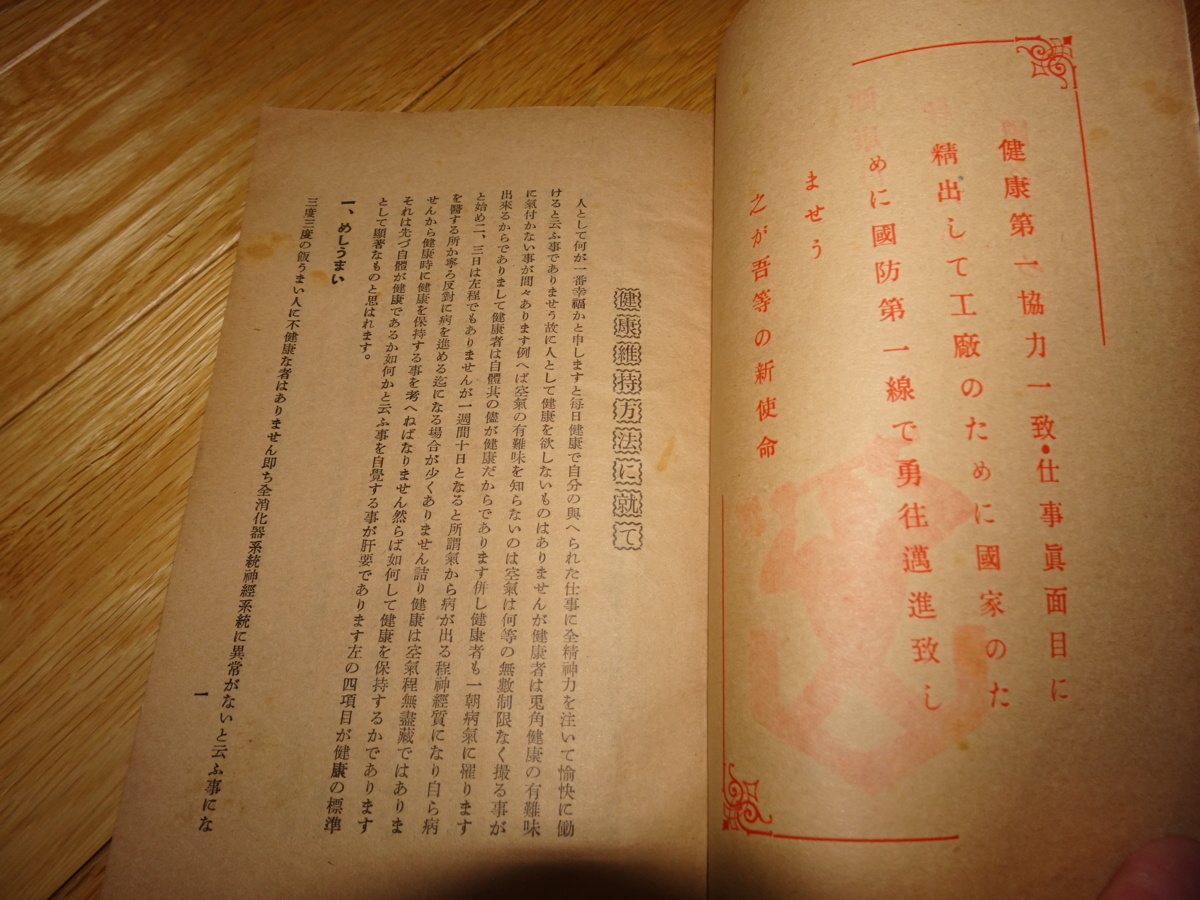 健康第一協力一致•仕事眞面目に
精出して工廠のために國家のた
めに國防第一線で勇往邁進致し
ませう
之が吾等の新使命
健康維持方法に就て
人として何が一番幸福かと申しますと毎日健康で自分の與へられた仕事に全精神力を注いで愉快に働
けると云ふ事でありませう故に人として健康を欲しないものはありませんが健康者は兎角健康の有難味
に氣付かない事が間々あります例へば空氣の有難味を知らないのは空氣は何等の無數制限なく撮る事が
出來るからでありまして健康者は自體其の儘が健康だからであります併し健康者も一朝病氣に罹ります
と始め二、三日は左程でもありませんが一週間十日となると所謂氣から病が出る程神經質になり自ら病
を醫する所か寧ろ反對に病を進める迄になる場合が少くありません詰り健康は空氣程無盡藏ではありま
せんから健康時に健康を保持する事を考へねばなりません然らば如何して健康を保持するかであります
それは先づ自體が健康であるか如何かと云ふ事を自覺する事が肝要であります左の四項目が健康の標準
として顯著なものと思はれます。
一、めしうまい
三度三度の飯うまい人に不健康な者はありません即ち全消化器系統神經系統に異常がないと云ふ事にな
一